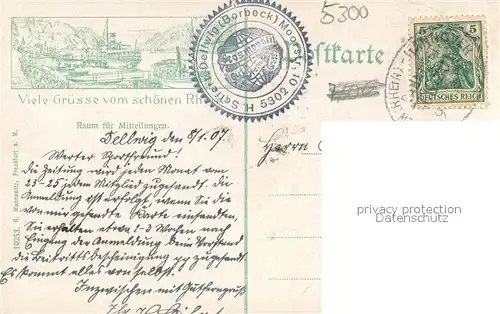 5300
Schreib, Dellwig (Borbeck) Moorstr. 10 H 5302
Kosmopolit
Postkarte
5
DEUTSCHES REICH
(RHEIN)
Viele Grüsse vom schönen Rh
Raum für Mitteilungen.
Dellwig den 8/1.07.
Werter Sportfreund!
Die Zeitung wird jeden Monat am
23-25 jeden Mitglied zugesandt. Die
Anmeldung ist erfolgt, wenn Sie die
von mir gesandte Karte einsandten,
Sie erhalten etwa 2-3 Wochen nach
Eingang der Anmeldung beim Vorstand
die Beitrittsbescheinigung pp zugesandt.
Es kommt alles von selbst.
Inzwischen mit Gutferngruß
Herrn
privacy protection
Datenschutz
10253. Frankfurt a. M.